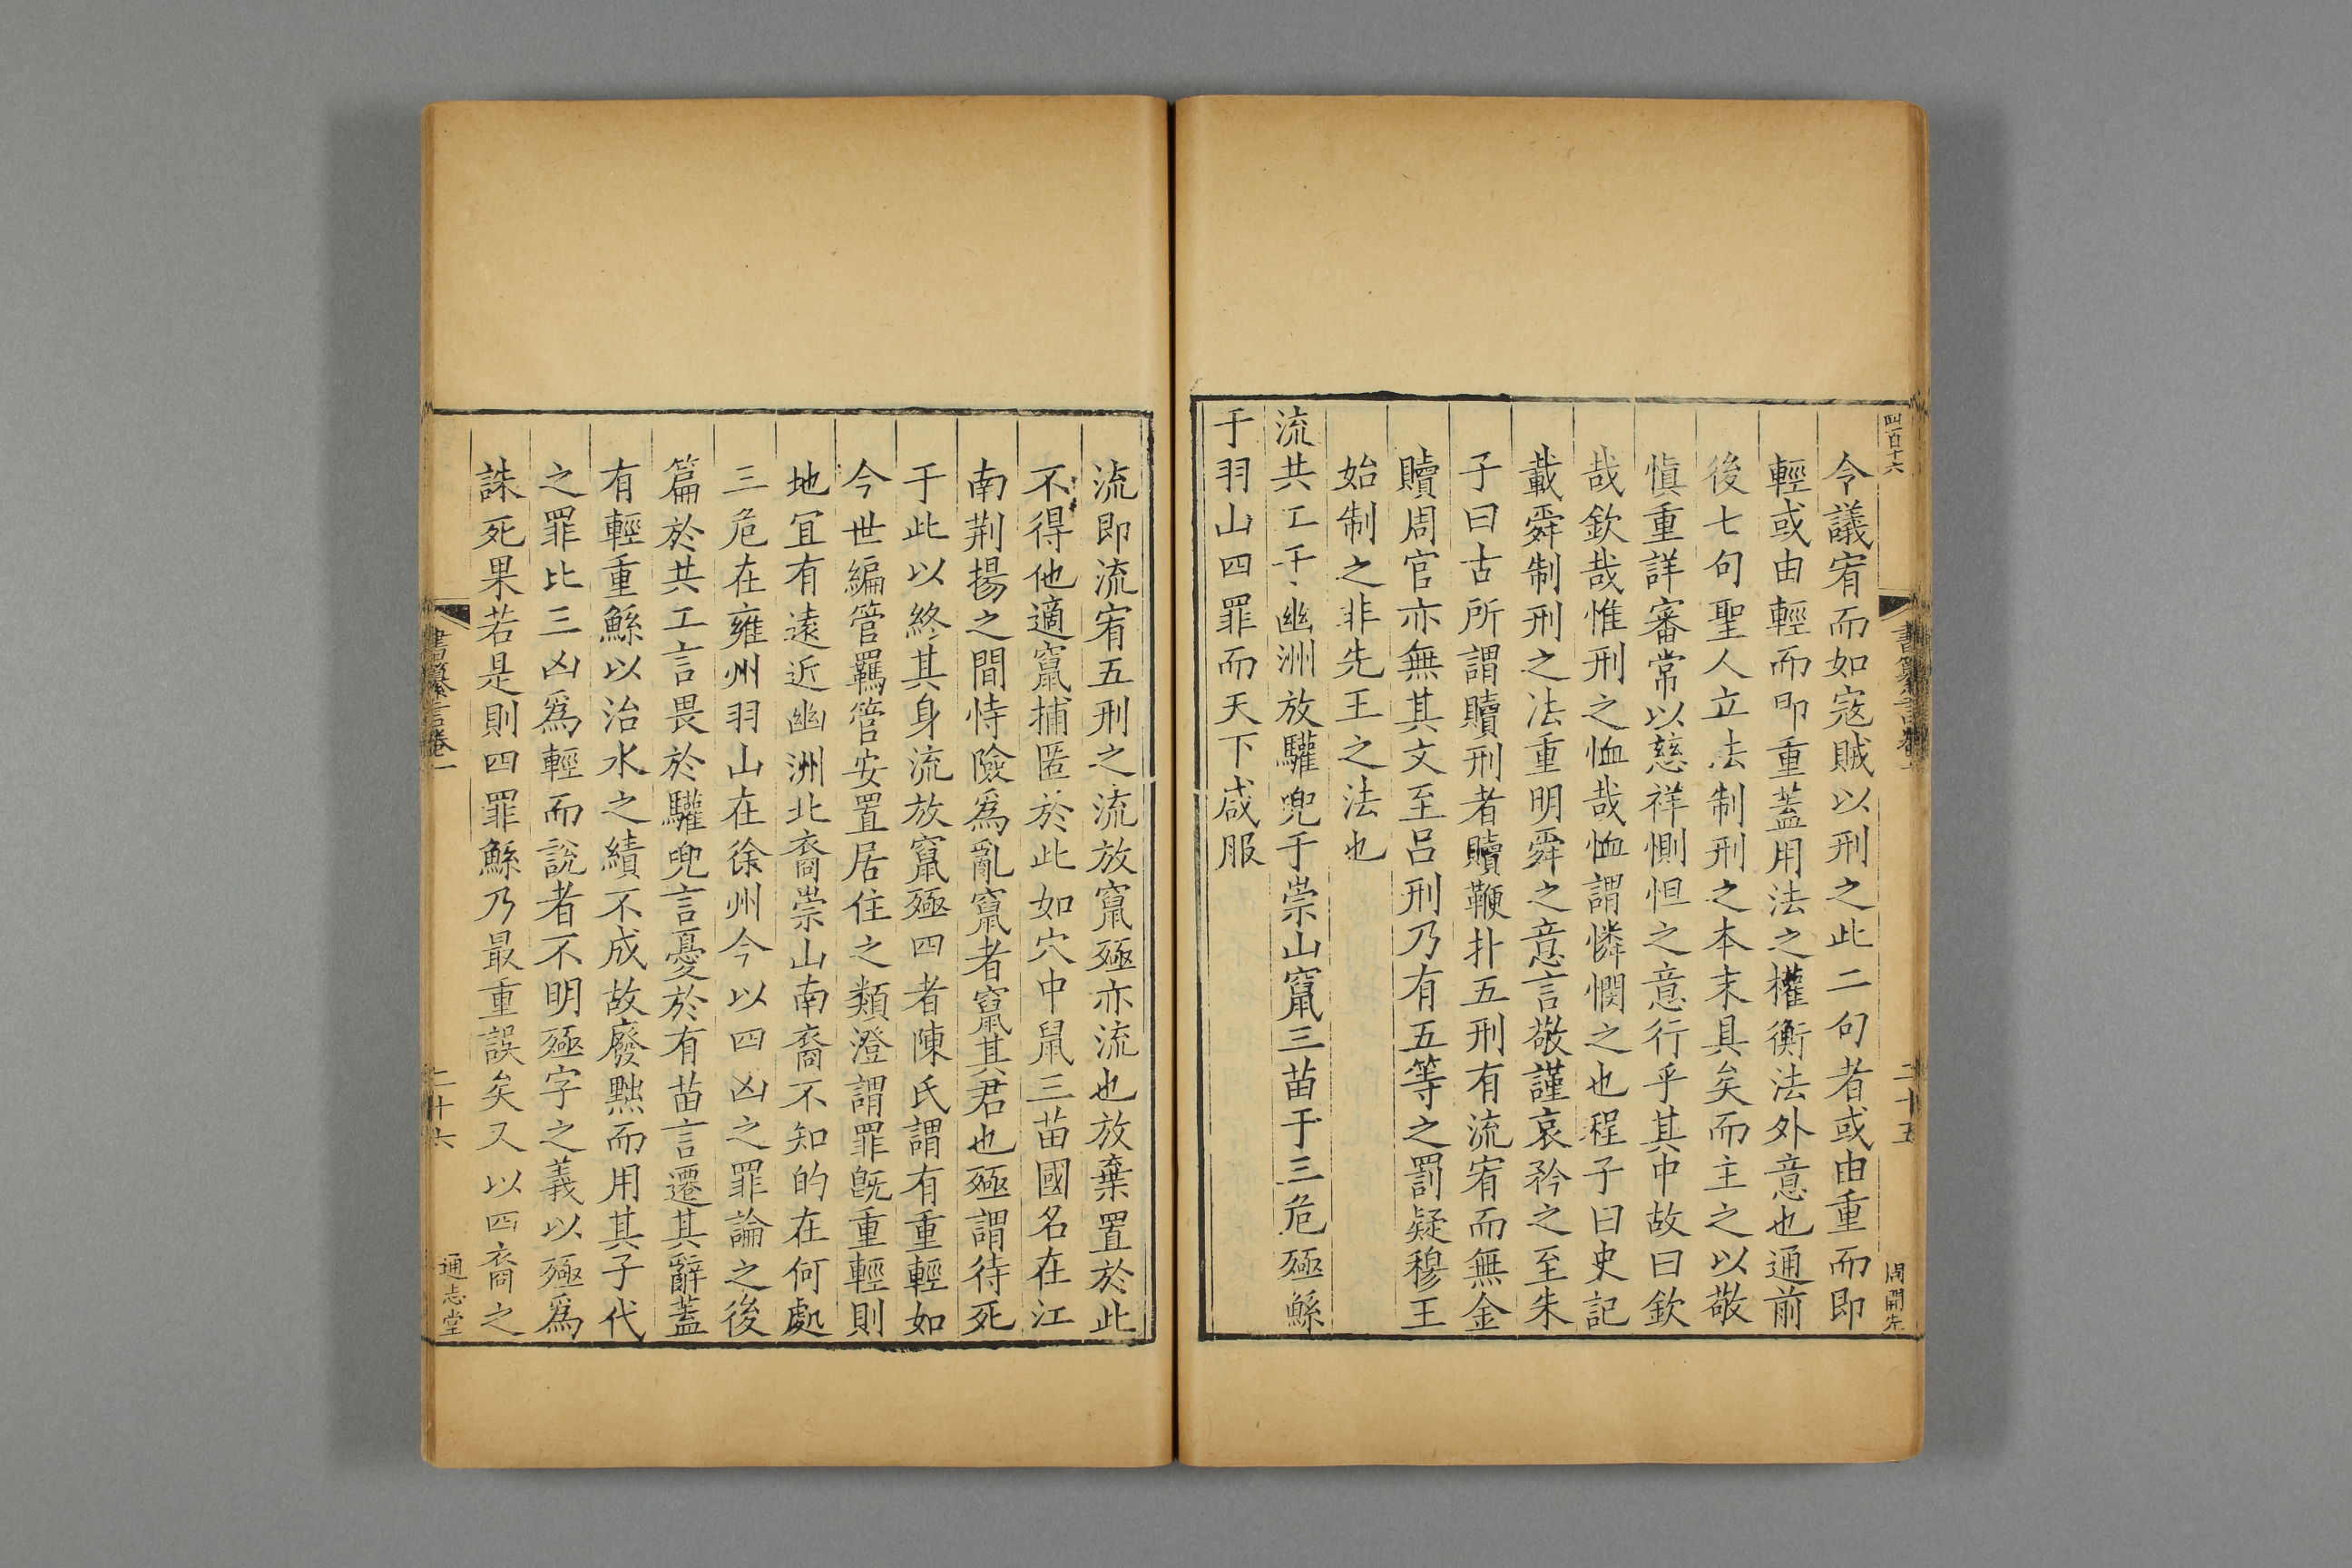 四百十六
書纂言卷一
二十五
周開先
令議宥而如寇賊以刑之此二句者或由重而即
輕或由輕而即重蓋用法之權衡法外意也通前
後七句聖人立法制刑之本末具矣而主之以敬
慎重詳審常以慈祥惻怛之意行乎其中故曰欽
哉欽哉惟刑之恤哉恤謂憐憫之也程子曰史記
載舜制刑之法重明舜之意言敬謹哀矜之至朱
子曰古所謂贖刑者贖鞭扑五刑有流宥而無金
贖周官亦無其文至呂刑乃有五等之罰疑穆王
始制之非先王之法也
流共工于幽洲放驩兜于崇山竄三苗于三危殛鯀
于羽山四罪而天下咸服
流即流宥五刑之流放竄殛亦流也放棄置於此
不得他適竄捕匿於此如穴中鼠三苗國名在江
南荆揚之間恃險爲亂竄者竄其君也殛謂待死
于此以終其身流放竄殛四者陳氏謂有重輕如
今世編管羈管安置居住之類澄謂罪旣重輕則
地宜有遠近幽洲北裔崇山南裔不知的在何處
三危在雍州羽山在徐州今以四凶之罪論之後
篇於共工言畏於驩兜言憂於有苗言遷其辭蓋
有輕重鯀以治水之績不成故廢黜而用其子代
之罪比三凶爲輕而說者不明殛字之義以殛爲
誅死果若是則四罪鯀乃最重誤矣又以四裔之
書纂言卷一
二十六
通志堂